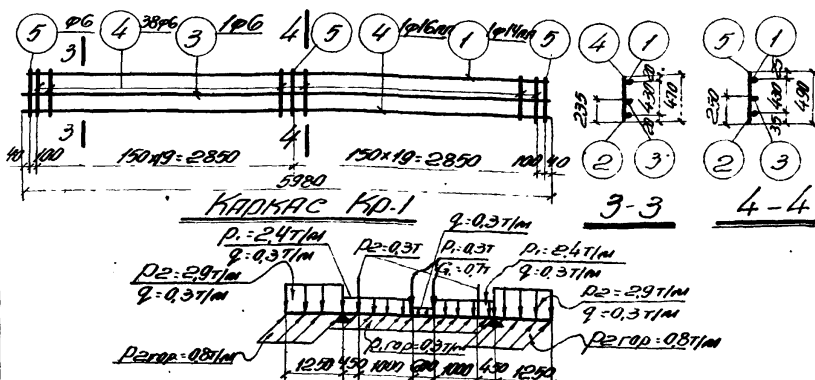 5 ф6 3 4 38ф6 3 1ф6 4 5 4 1ф16пп 1 1ф14пп 5
3 4
40 100 150х19=2850 150х19=2850 100 40
5980
КАРКАС КР-1
4 1
235
20 430 20
470
2 3
3-3
5 1
230
25 430 35
490
2 3
4-4
q=0,3т/м
P1=2,4т/м
q=0,3т/м
P2=0,3т
P1=0,3т
G1=0,7т
P1=2,4т/м
q=0,3т/м
P2=2,9т/м
q=0,3т/м
P2=2,9т/м
q=0,3т/м
P2гор=0,8т/м
P1гор=0,9т/м
P2гор=0,8т/м
1250 450 1000 600 1000 450 1250